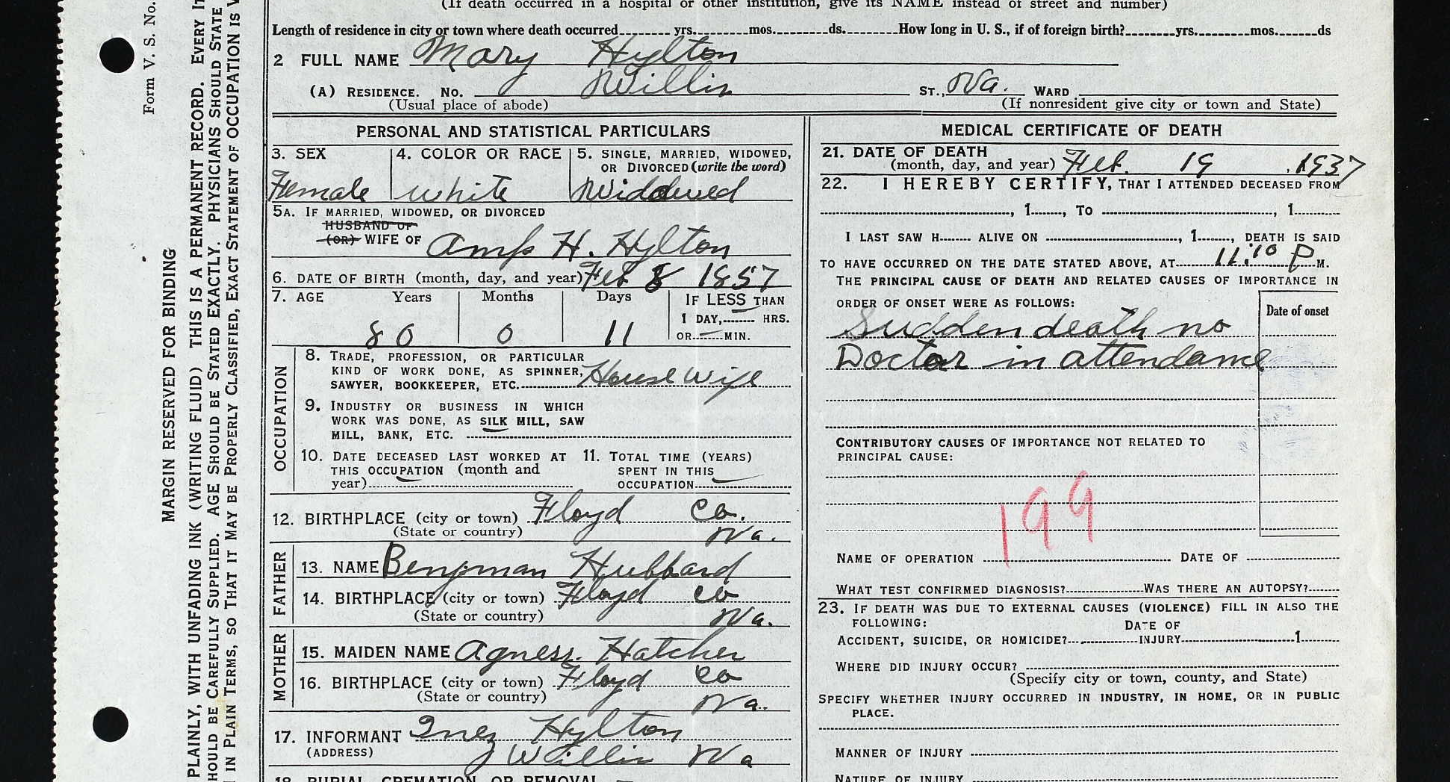 (If death occurred in a hospital or other institution, give its NAME instead of street and number)
Length of residence in city or town where death occurred yrs. mos. ds. How long in U. S., if of foreign birth? yrs. mos. ds
2 FULL NAME Mary Hylton
(A) RESIDENCE. No. Willis ST., Va. WARD
(Usual place of abode) (If nonresident give city or town and State)
PERSONAL AND STATISTICAL PARTICULARS
3. SEX 4. COLOR OR RACE 5. SINGLE, MARRIED, WIDOWED,
OR DIVORCED (write the word)
Female White Widowed
5A. IF MARRIED, WIDOWED, OR DIVORCED
HUSBAND OF
(OR) WIFE OF Amps H. Hylton
6. DATE OF BIRTH (month, day, and year) Feb 8 1857
7. AGE Years Months Days IF LESS THAN
1 DAY, HRS.
80 0 11 OR MIN.
OCCUPATION
8. TRADE, PROFESSION, OR PARTICULAR
KIND OF WORK DONE, AS SPINNER,
SAWYER, BOOKKEEPER, ETC. House Wife
9. INDUSTRY OR BUSINESS IN WHICH
WORK WAS DONE, AS SILK MILL, SAW
MILL, BANK, ETC.
10. DATE DECEASED LAST WORKED AT 11. TOTAL TIME (YEARS)
THIS OCCUPATION (month and SPENT IN THIS
year) OCCUPATION
12. BIRTHPLACE (city or town) Floyd Co.
(State or country) Va.
FATHER
13. NAME Benjman Hubbard
14. BIRTHPLACE (city or town) Floyd Co
(State or country) Va.
MOTHER
15. MAIDEN NAME Agness Hatcher
16. BIRTHPLACE (city or town) Floyd Co
(State or country) Va.
17. INFORMANT Inez Hylton
(ADDRESS) Willis Va
18 BURIAL, CREMATION, OR REMOVAL
MEDICAL CERTIFICATE OF DEATH
21. DATE OF DEATH
(month, day, and year) Feb. 19 , 1937
22. I HEREBY CERTIFY, THAT I ATTENDED DECEASED FROM
, 1 , TO , 1
I LAST SAW H ALIVE ON , 1 , DEATH IS SAID
TO HAVE OCCURRED ON THE DATE STATED ABOVE, AT 11:10 P M.
THE PRINCIPAL CAUSE OF DEATH AND RELATED CAUSES OF IMPORTANCE IN
ORDER OF ONSET WERE AS FOLLOWS: Date of onset
Sudden death no
Doctor in attendance
CONTRIBUTORY CAUSES OF IMPORTANCE NOT RELATED TO
PRINCIPAL CAUSE:
199
NAME OF OPERATION DATE OF
WHAT TEST CONFIRMED DIAGNOSIS? WAS THERE AN AUTOPSY?
23. IF DEATH WAS DUE TO EXTERNAL CAUSES (VIOLENCE) FILL IN ALSO THE
FOLLOWING: DATE OF
ACCIDENT, SUICIDE, OR HOMICIDE? INJURY 1
WHERE DID INJURY OCCUR?
(Specify city or town, county, and State)
SPECIFY WHETHER INJURY OCCURRED IN INDUSTRY, IN HOME, OR IN PUBLIC
PLACE.
MANNER OF INJURY
NATURE OF INJURY
Form V. S. No.
MARGIN RESERVED FOR BINDING
PLAINLY, WITH UNFADING INK (WRITING FLUID) THIS IS A PERMANENT RECORD. EVERY
HOULD BE CAREFULLY SUPPLIED. AGE SHOULD BE STATED EXACTLY. PHYSICIANS SHOULD STATE
IN PLAIN TERMS, SO THAT IT MAY BE PROPERLY CLASSIFIED, EXACT STATEMENT OF OCCUPATION IS